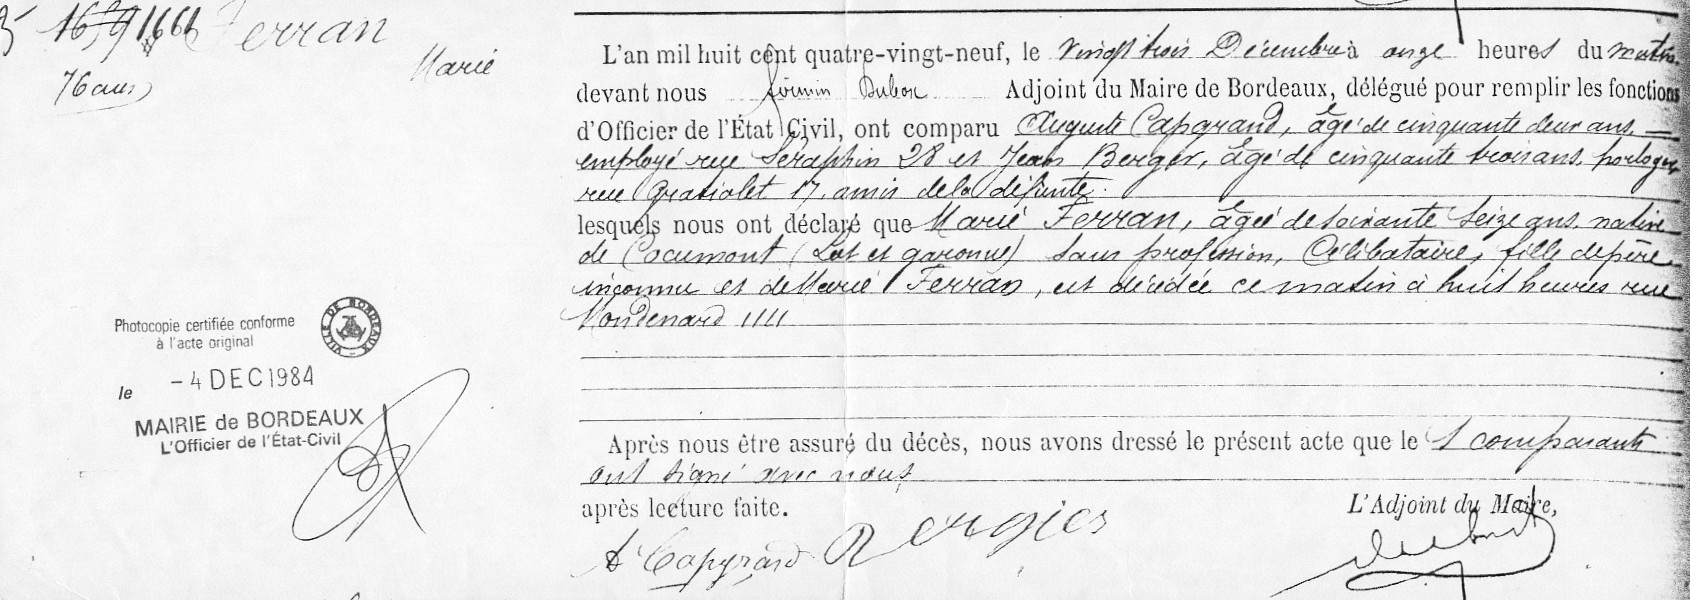 1659 1661 Ferran
Marie
76 ans
L'an mil huit cent quatre-vingt-neuf, le vingt trois Décembre à onze heures du matin
devant nous Firmin Dubon Adjoint du Maire de Bordeaux, délégué pour remplir les fonctions
d'Officier de l'État Civil, ont comparu Auguste Capgrand, âgé de cinquante deux ans
employé rue Séraphin 28 et Jean Berger, âgé de cinquante trois ans, horloger
rue Gratiolet 17, amis de la défunte.
lesquels nous ont déclaré que Marie Ferran, âgée de soixante seize ans, native
de Cocumont (Lot et garonne) sans profession, Célibataire, fille de père
inconnu et de Marie Ferran, est décédée ce matin à huit heures rue
Mondenard
Photocopie certifiée conforme
à l'acte original
VILLE DE BORDEAUX
le -4 DEC 1984
MAIRIE de BORDEAUX
L'Officier de l'État-Civil
Après nous être assuré du décès, nous avons dressé le présent acte que le s comparants
ont signé avec nous
après lecture faite.
L'Adjoint du Maire,
A Capgrand